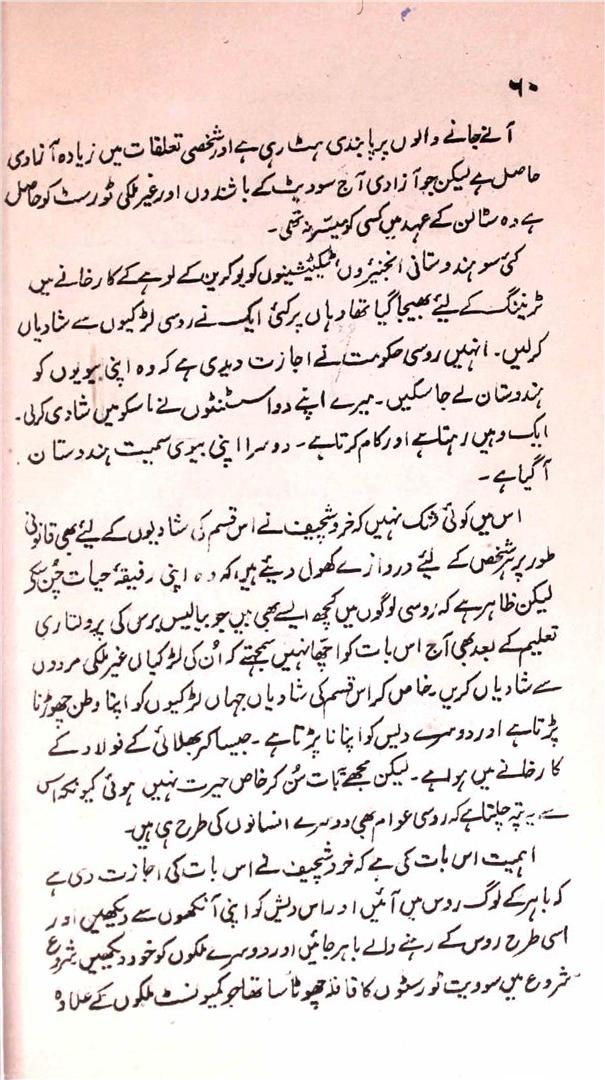 ۶۰
آنے جانے والوں پر پابندی ہٹ رہی ہے اور شخصی تعلقات میں زیادہ آزادی
حاصل ہے لیکن جو آزادی آج سوویٹ کے باشندوں اور غیر ملکی ٹورسٹ کو حاصل
ہے وہ سٹالن کے عہد میں کسی کو میسر نہ تھی۔
کئی سو ہندوستانی انجنیئروں، ٹیکنیشینوں کو یوکرین کے لوہے کے کارخانے میں
ٹریننگ کے لیئے بھیجا گیا تھا وہاں پر کئی ایک نے روسی لڑکیوں سے شادیاں
کرلیں۔ انہیں روسی حکومت نے اجازت دیدی ہے کہ وہ اپنی بیویوں کو
ہندوستان لے جا سکیں۔ میرے اپنے دو اسسٹنٹوں نے ماسکو میں شادی کرلی۔
ایک وہیں رہتا ہے اور کام کرتا ہے۔ دوسرا اپنی بیوی سمیت ہندوستان
آ گیا ہے۔
اس میں کوئی شک نہیں کہ خروشچیف نے اس قسم کی شادیوں کے لیئے بھی قانونی
طور پر ہر شخص کے لیئے دروازے کھول دیئے ہیں، کہ وہ اپنی رفیقۂ حیات چُن سکے
لیکن ظاہر ہے کہ روسی لوگوں میں کچھ ایسے بھی ہیں جو بیالیس برس کی پرولتاری
تعلیم کے بعد بھی آج اس بات کو اچھا نہیں سمجھتے کہ اُن کی لڑکیاں غیر ملکی مردوں
سے شادیاں کریں۔ خاص کر اس قسم کی شادیاں جہاں لڑکیوں کو اپنا وطن چھوڑنا
پڑتا ہے اور دوسرے دیس کو اپنانا پڑتا ہے۔ جیسا کہ بھلائی کے فولاد کے
کارخانے میں ہوا ہے۔ لیکن مجھے یہ بات سُن کر خاص حیرت نہیں ہوئی کیونکہ اس
سے یہ پتہ چلتا ہے کہ روسی عوام بھی دوسرے انسانوں کی طرح ہی ہیں۔
اہمیت اس بات کی ہے کہ خروشچیف نے اس بات کی اجازت دی ہے
کہ باہر کے لوگ روس میں آئیں اور اس دیش کو اپنی آنکھوں سے دیکھیں اور
اسی طرح روس کے رہنے والے باہر جائیں اور دوسرے ملکوں کو خود دیکھیں شروع
شروع میں سوویت ٹورسٹوں کا قافلہ چھوٹا سا تھا جو کمیونسٹ ملکوں کے علاوہ